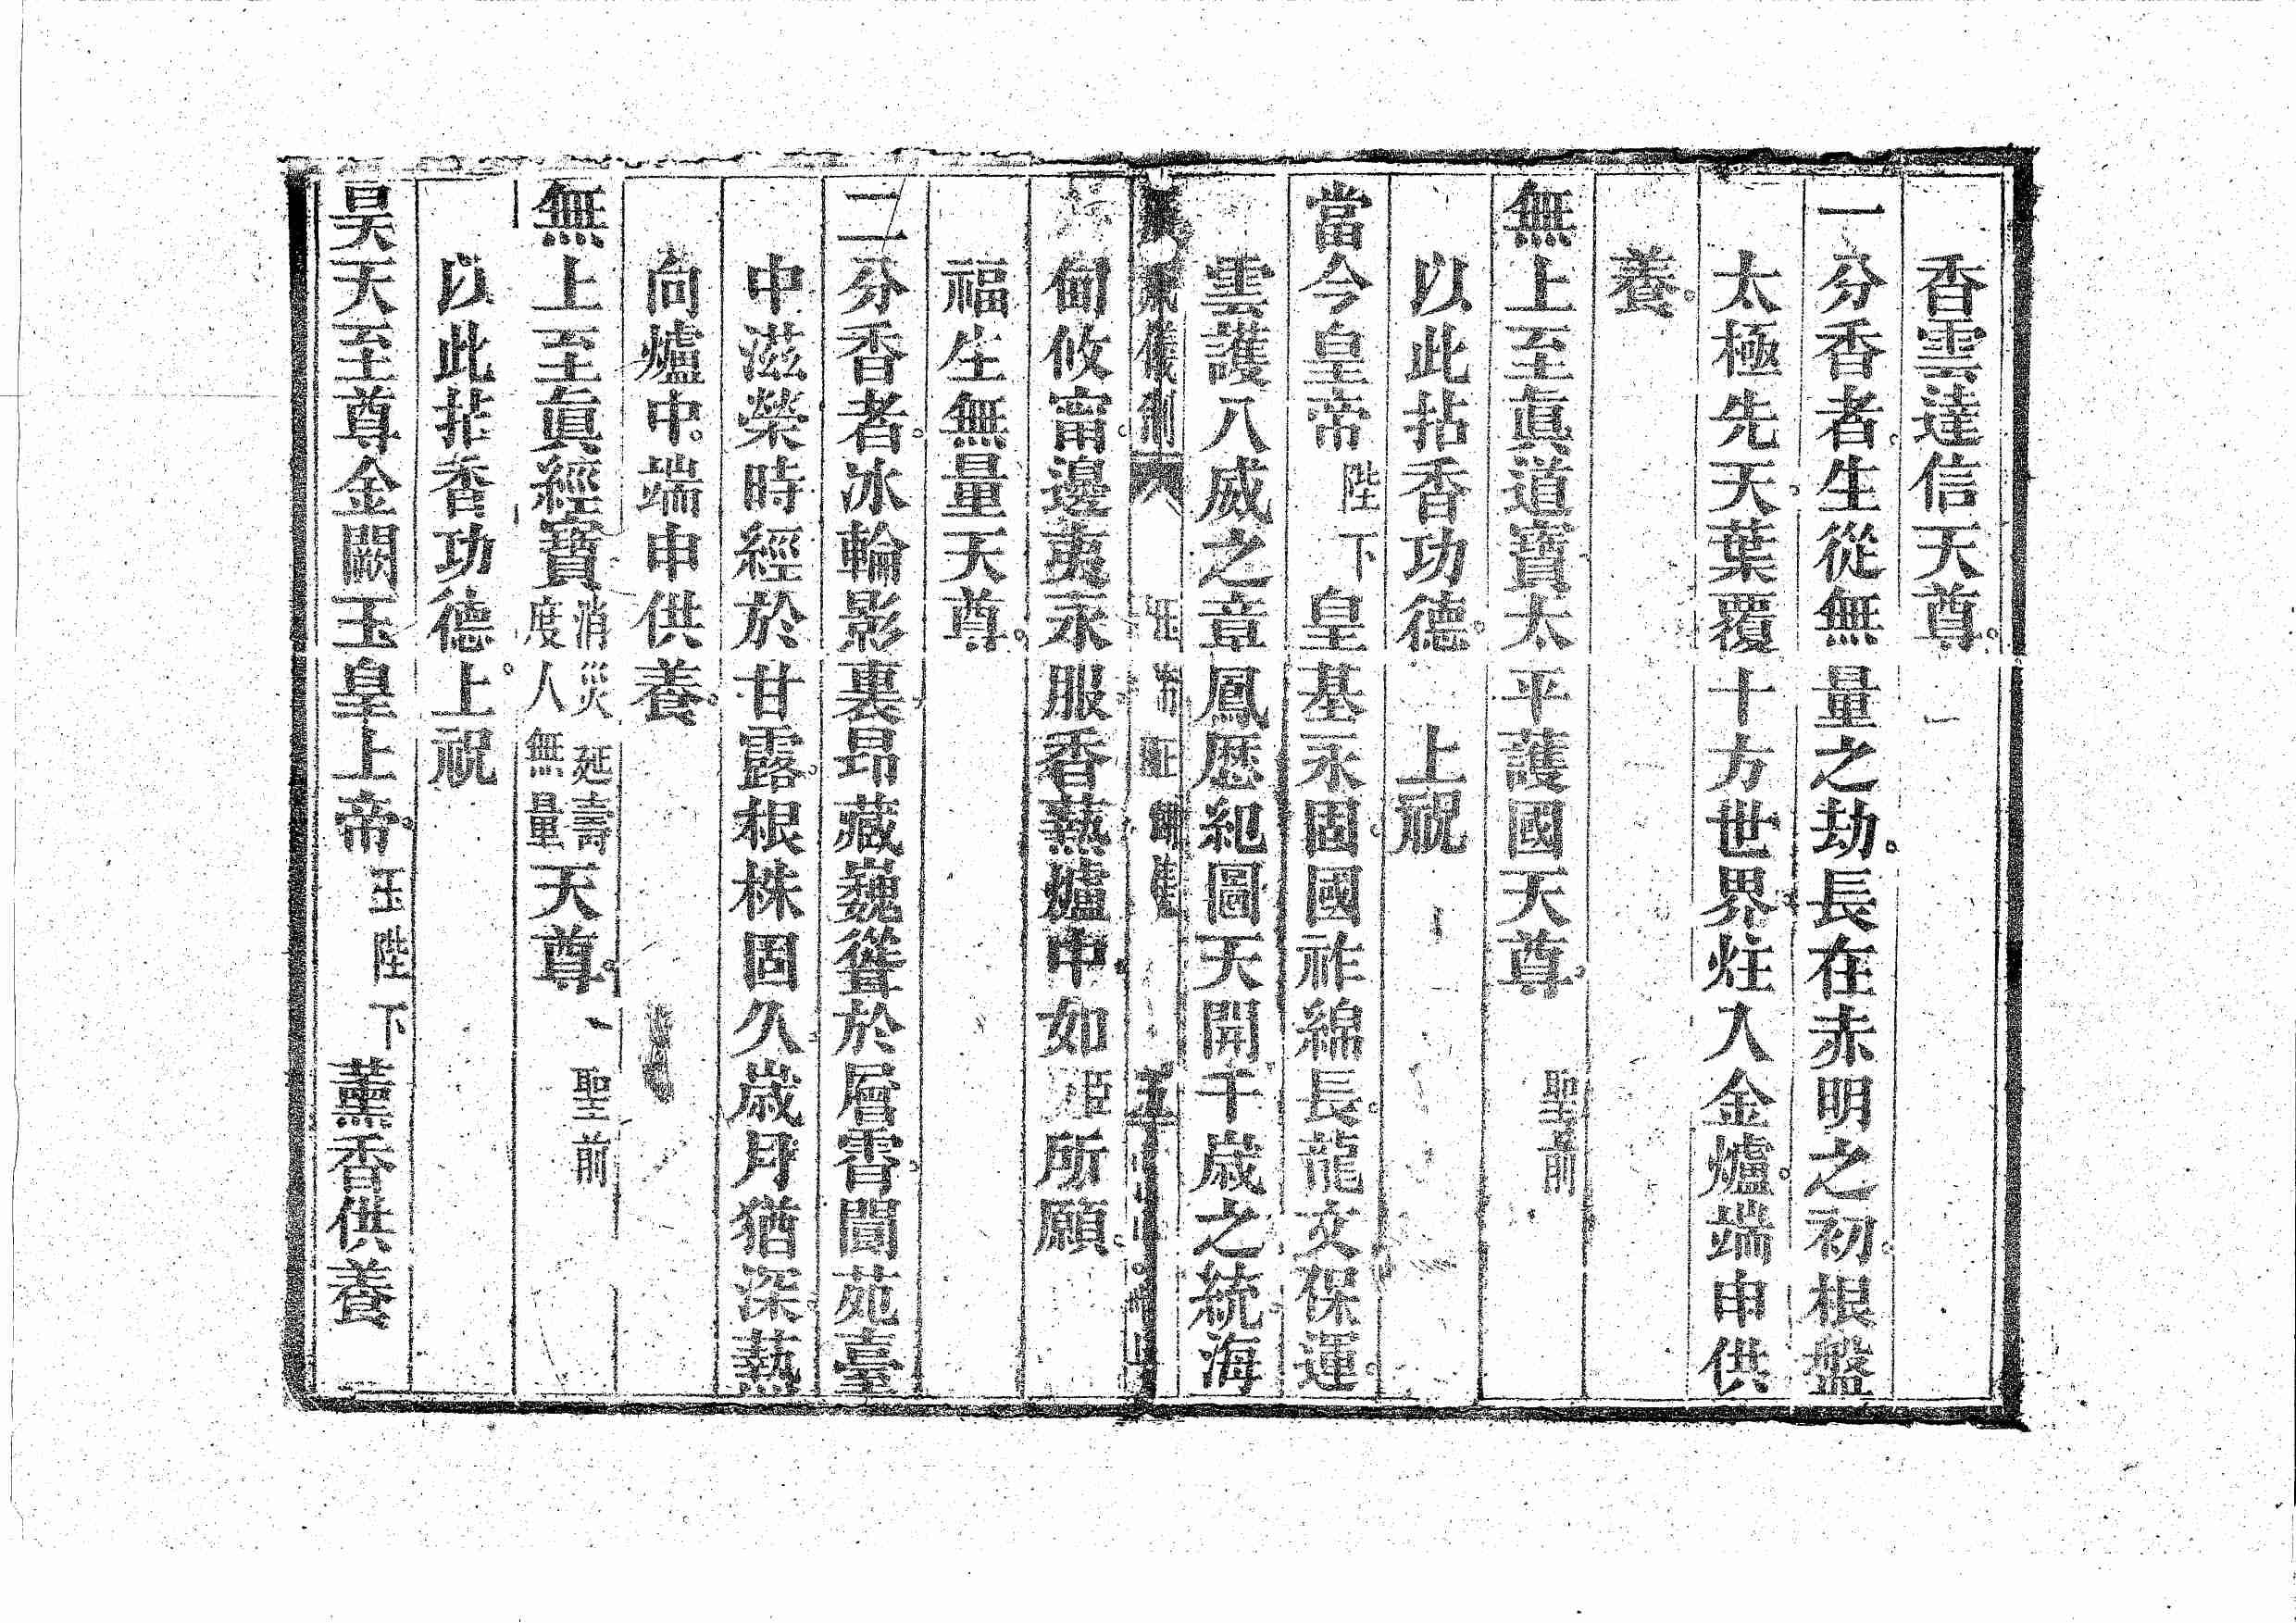 香雲達信天尊。
一分香者。生從無量之劫。長在赤明之初。根盤
太極先天。葉覆十方世界。炷入金爐。端申供
養。
無上至眞道寶太平護國天尊。聖前
以此拈香功德。上祝
當今皇帝陛下皇基永固。國祚綿長。龍文保運。
雲護八威之章。鳳曆紀圖。天開千歲之統。海
甸攸甯。邊夷永服。香爇爐中。如 所願。
福生無量天尊。
二分香者。冰輪影裏。昂藏巍聳於層霄。閬苑臺
中。滋榮時經於甘露。根株固久。歲月猶深。爇
向爐中。端申供養。
無上至眞經寶消災延壽度人無量天尊。聖前
以此拈香功德。上祝
昊天至尊金闕玉皇上帝。玉陛下薰香供養